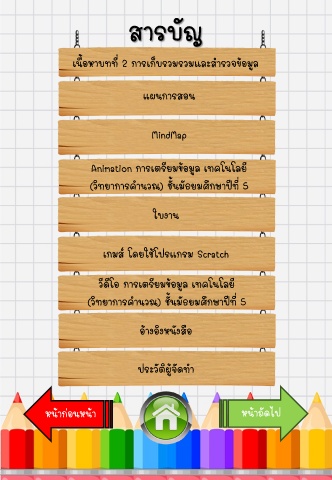 สารบัญ
เนื้อหาบทที่ 2 การเก็บรวมรวมและสำรวจข้อมูล
แผนการสอน
MindMap
Animation การเตรียมข้อมูล เทคโนโลยี
(วิทยาการคำนวณ) ชั้นมัธยมศึกษาปีที่ 5
ใบงาน
เกมส์ โดยใช้โปรแกรม Scratch
วีดีโอ การเตรียมข้อมูล เทคโนโลยี
(วิทยาการคำนวณ) ชั้นมัธยมศึกษาปีที่ 5
อ้างอิงหนังสือ
ประวัติผู้จัดทำ
หน้าก่อนหน้า
หน้าถัดไป